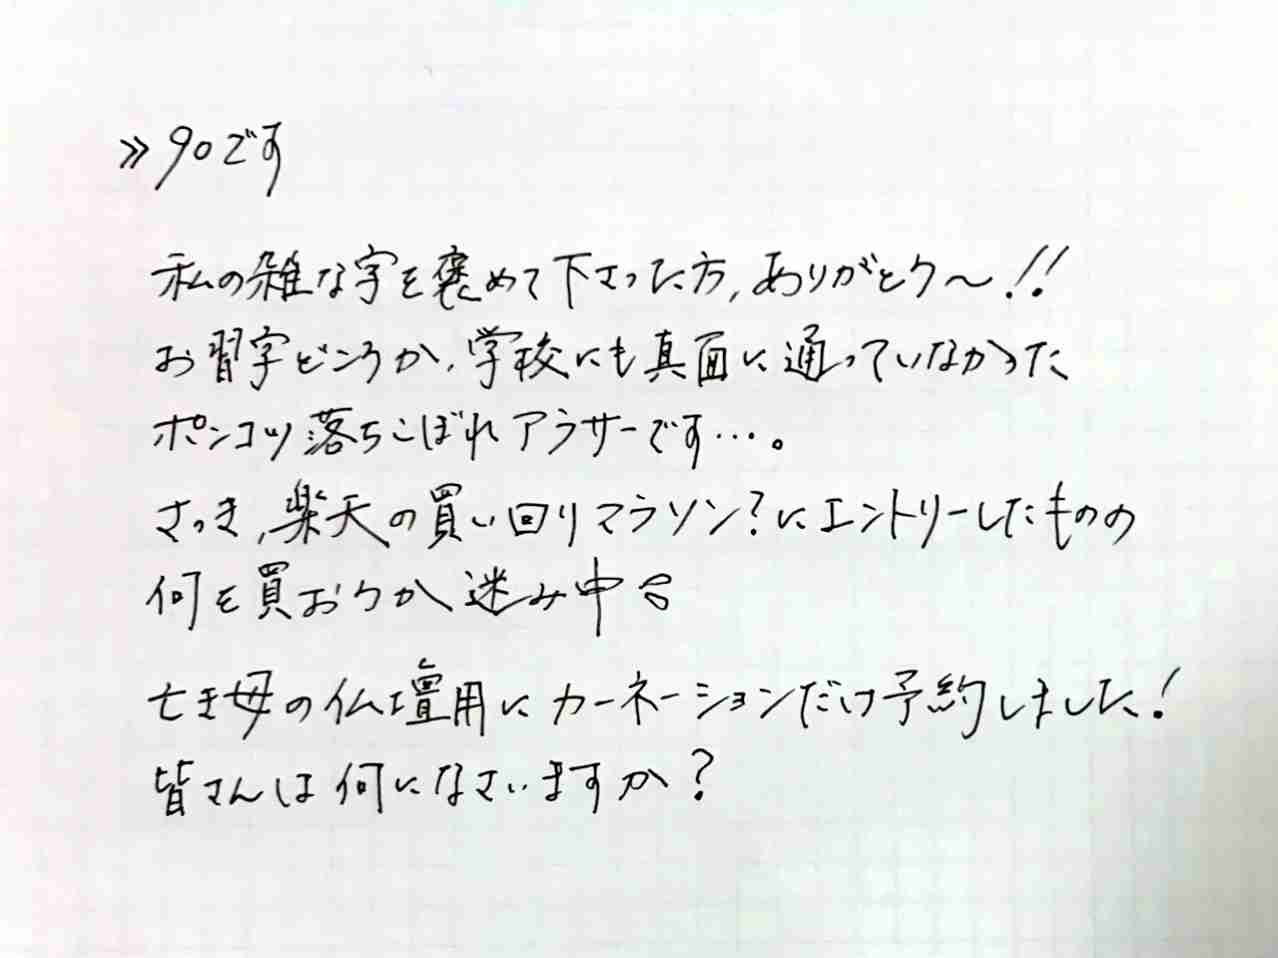 ≫90です
私の雑な字を褒めて下さった方,ありがとう〜!!
お習字どころか,学校にも真面に通っていなかった
ポンコツ落ちこぼれアラサーです…。
さっき,楽天の買い回りマラソン?にエントリーしたものの
何を買おうか迷み中
亡き母の仏壇用にカーネーションだけ予約しました!
皆さんは何になさいますか?